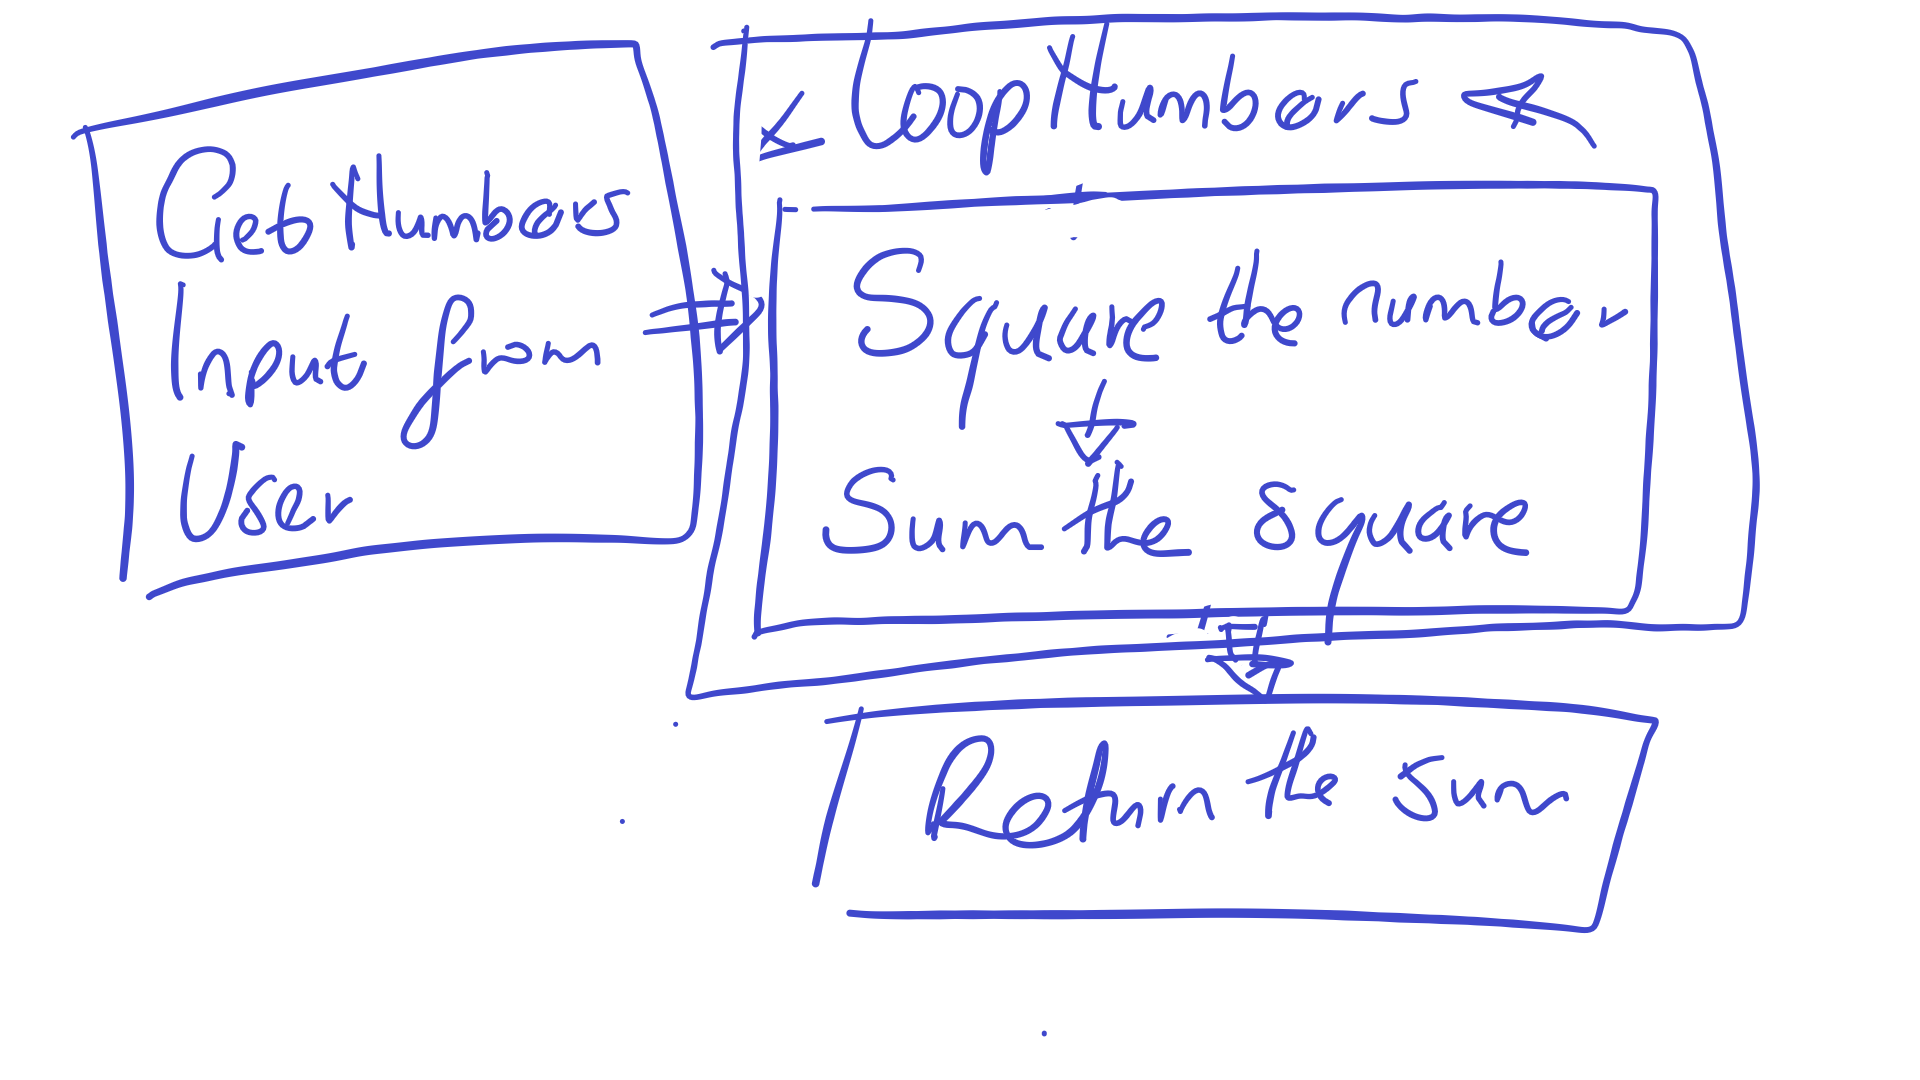 Get Numbers
Input from
User
Loop Numbers
Square the number
Sum the square
Return the sum